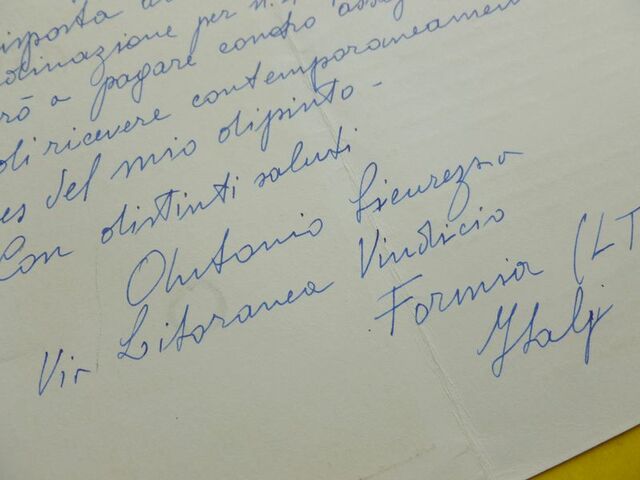 risposta
per n.
rò a pagare contro
di ricevere contemporaneamen
es del mio dipinto -
Con distinti saluti
Antonio Sicurezza
Via Litoranea Vindicio
Formia (LT
Italy